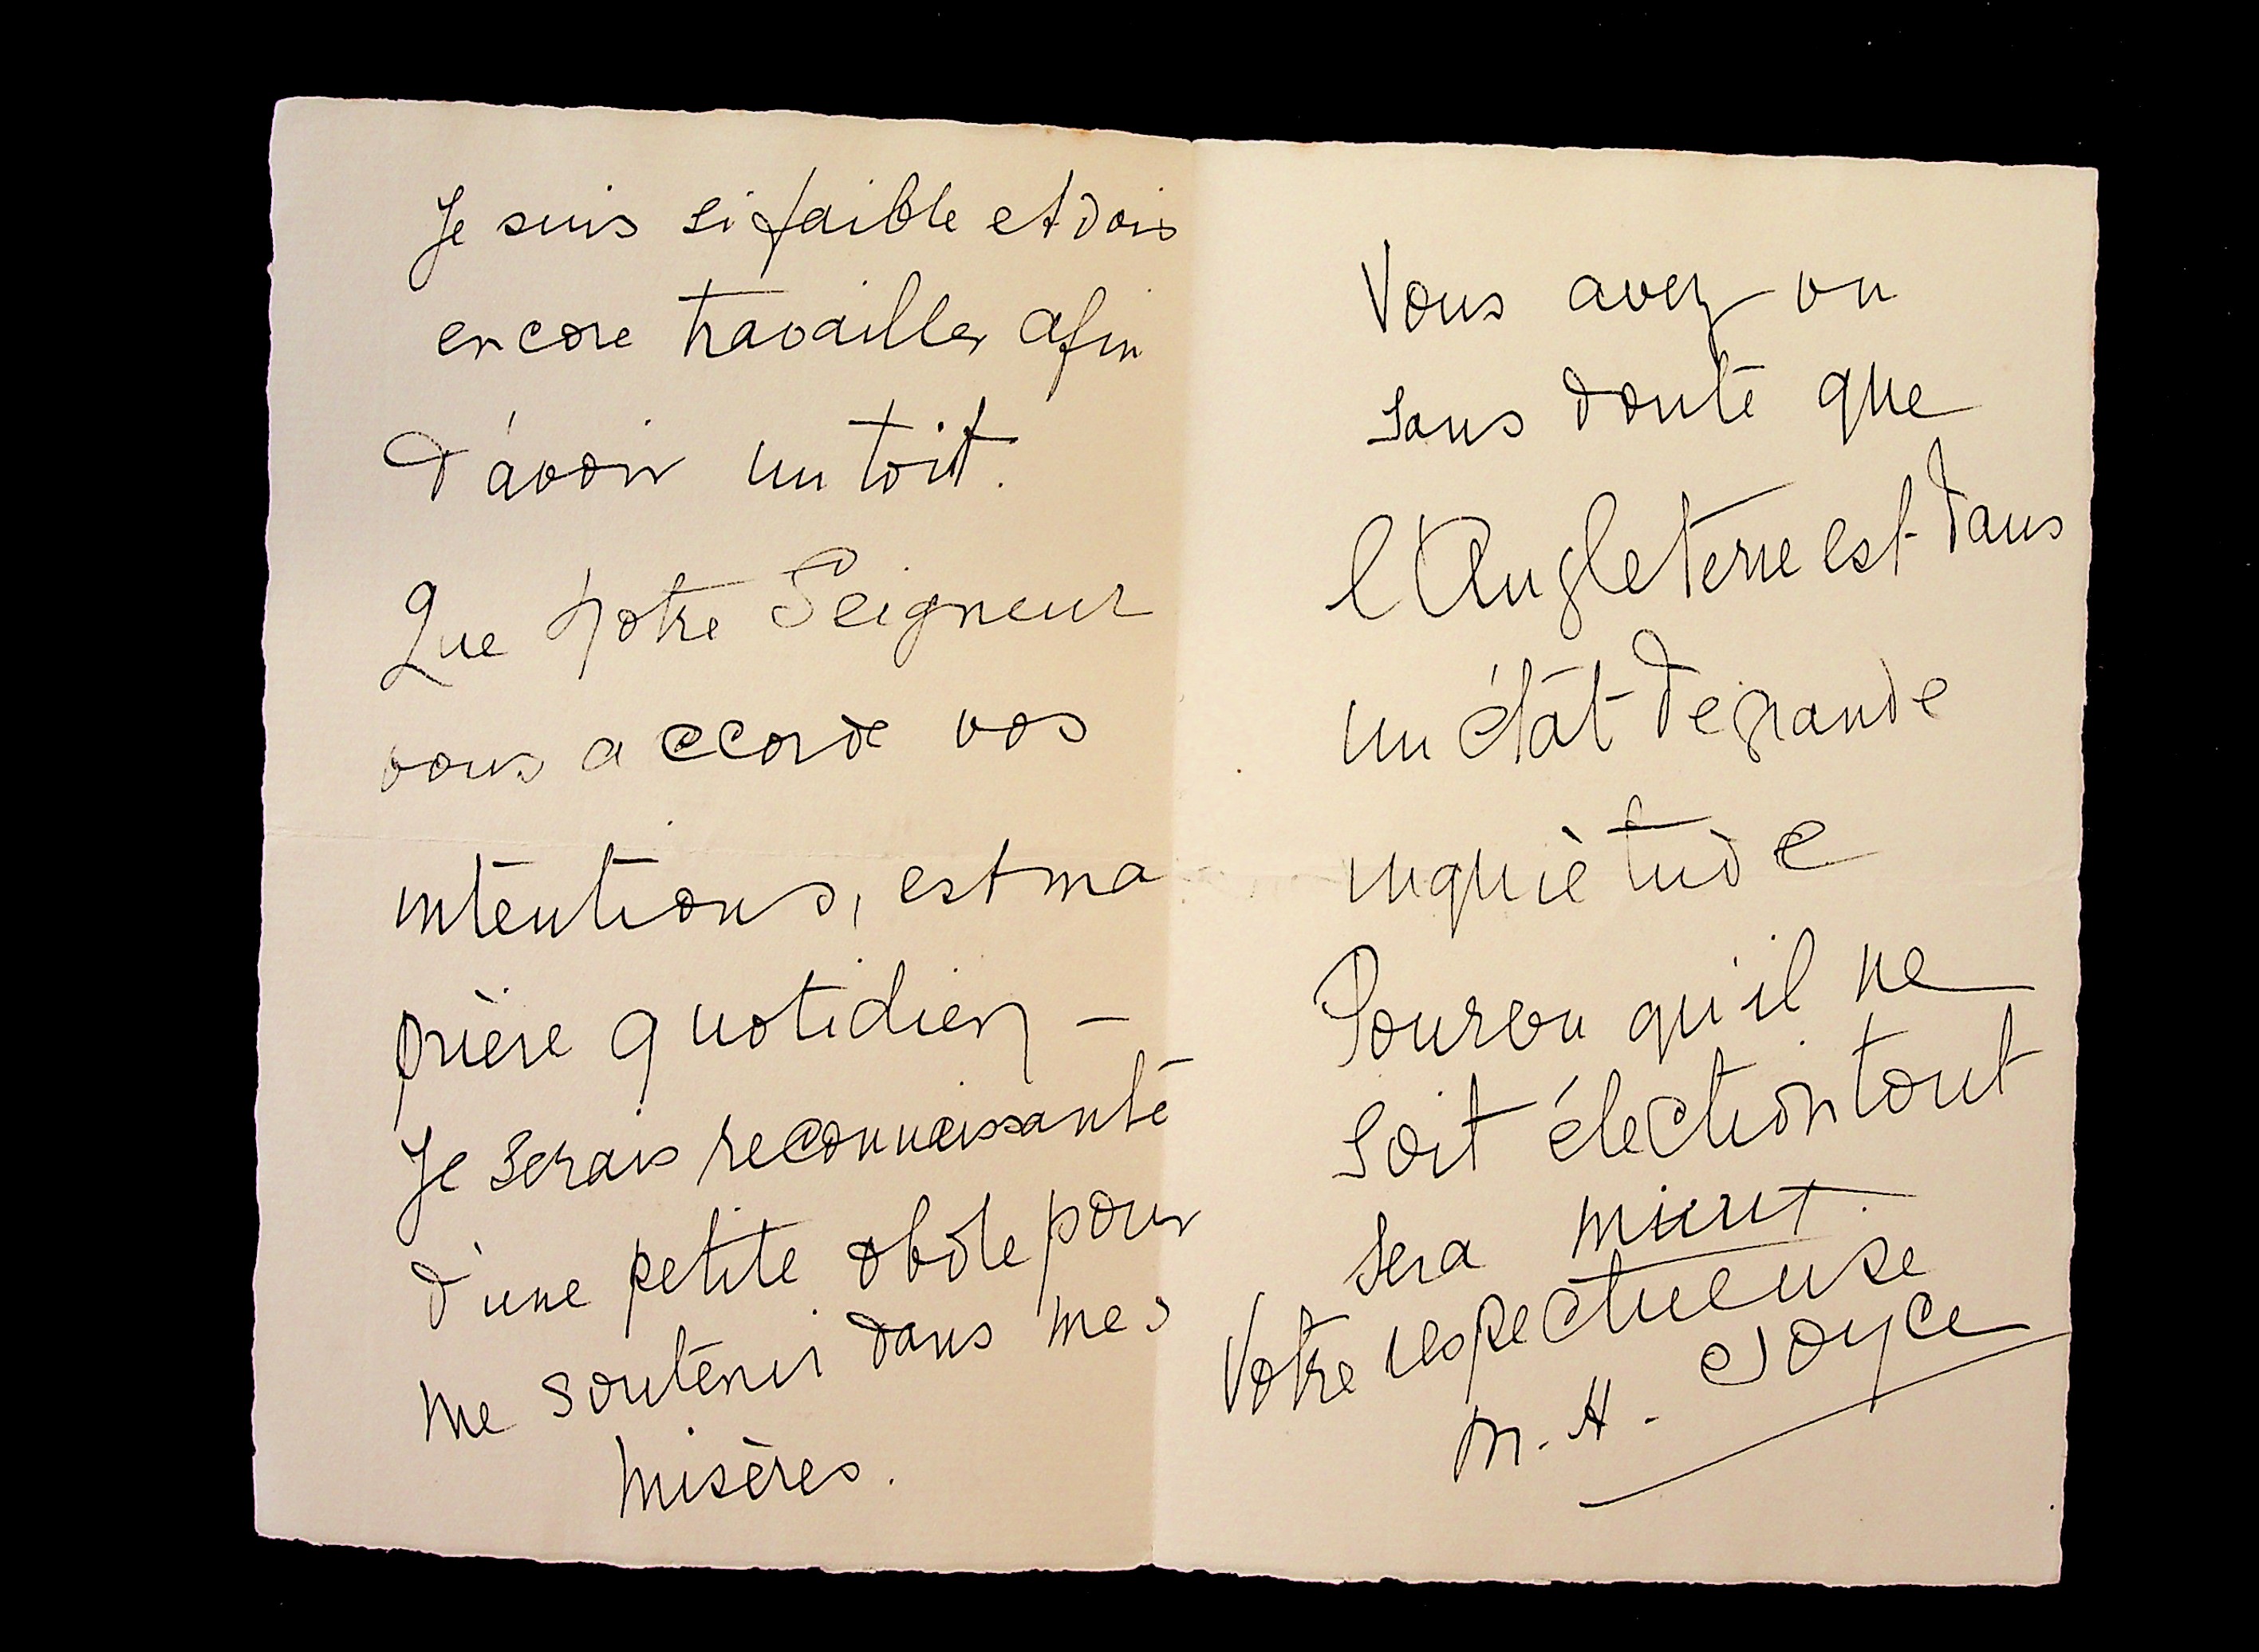 Je suis si faible et dois
encore travailler afin
d'avoir un toit.
Que Notre Seigneur
vous accorde vos
intentions, est ma
prière quotidien —
Je serais reconnaissante
d'une petite obole pour
me soutenir dans mes
misères.
Vous avez vu
sans doute que
l'Angleterre est dans
un état de grande
inquiètude
Pourvu qu'il ne
soit élection tout
sera mieux.
Votre respectueuse
M. H. Joyce